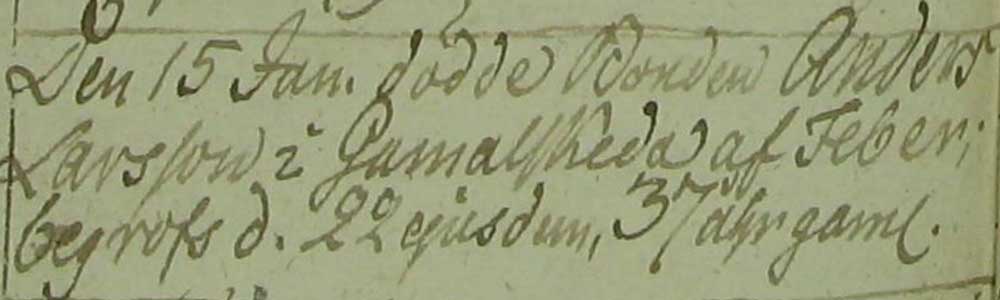 Den 15 Jan. dödde Bonden Anders
Larsson i Gamalskeda af Feber;
begrofs d. 22 ejusdem, 37 åhr gaml.